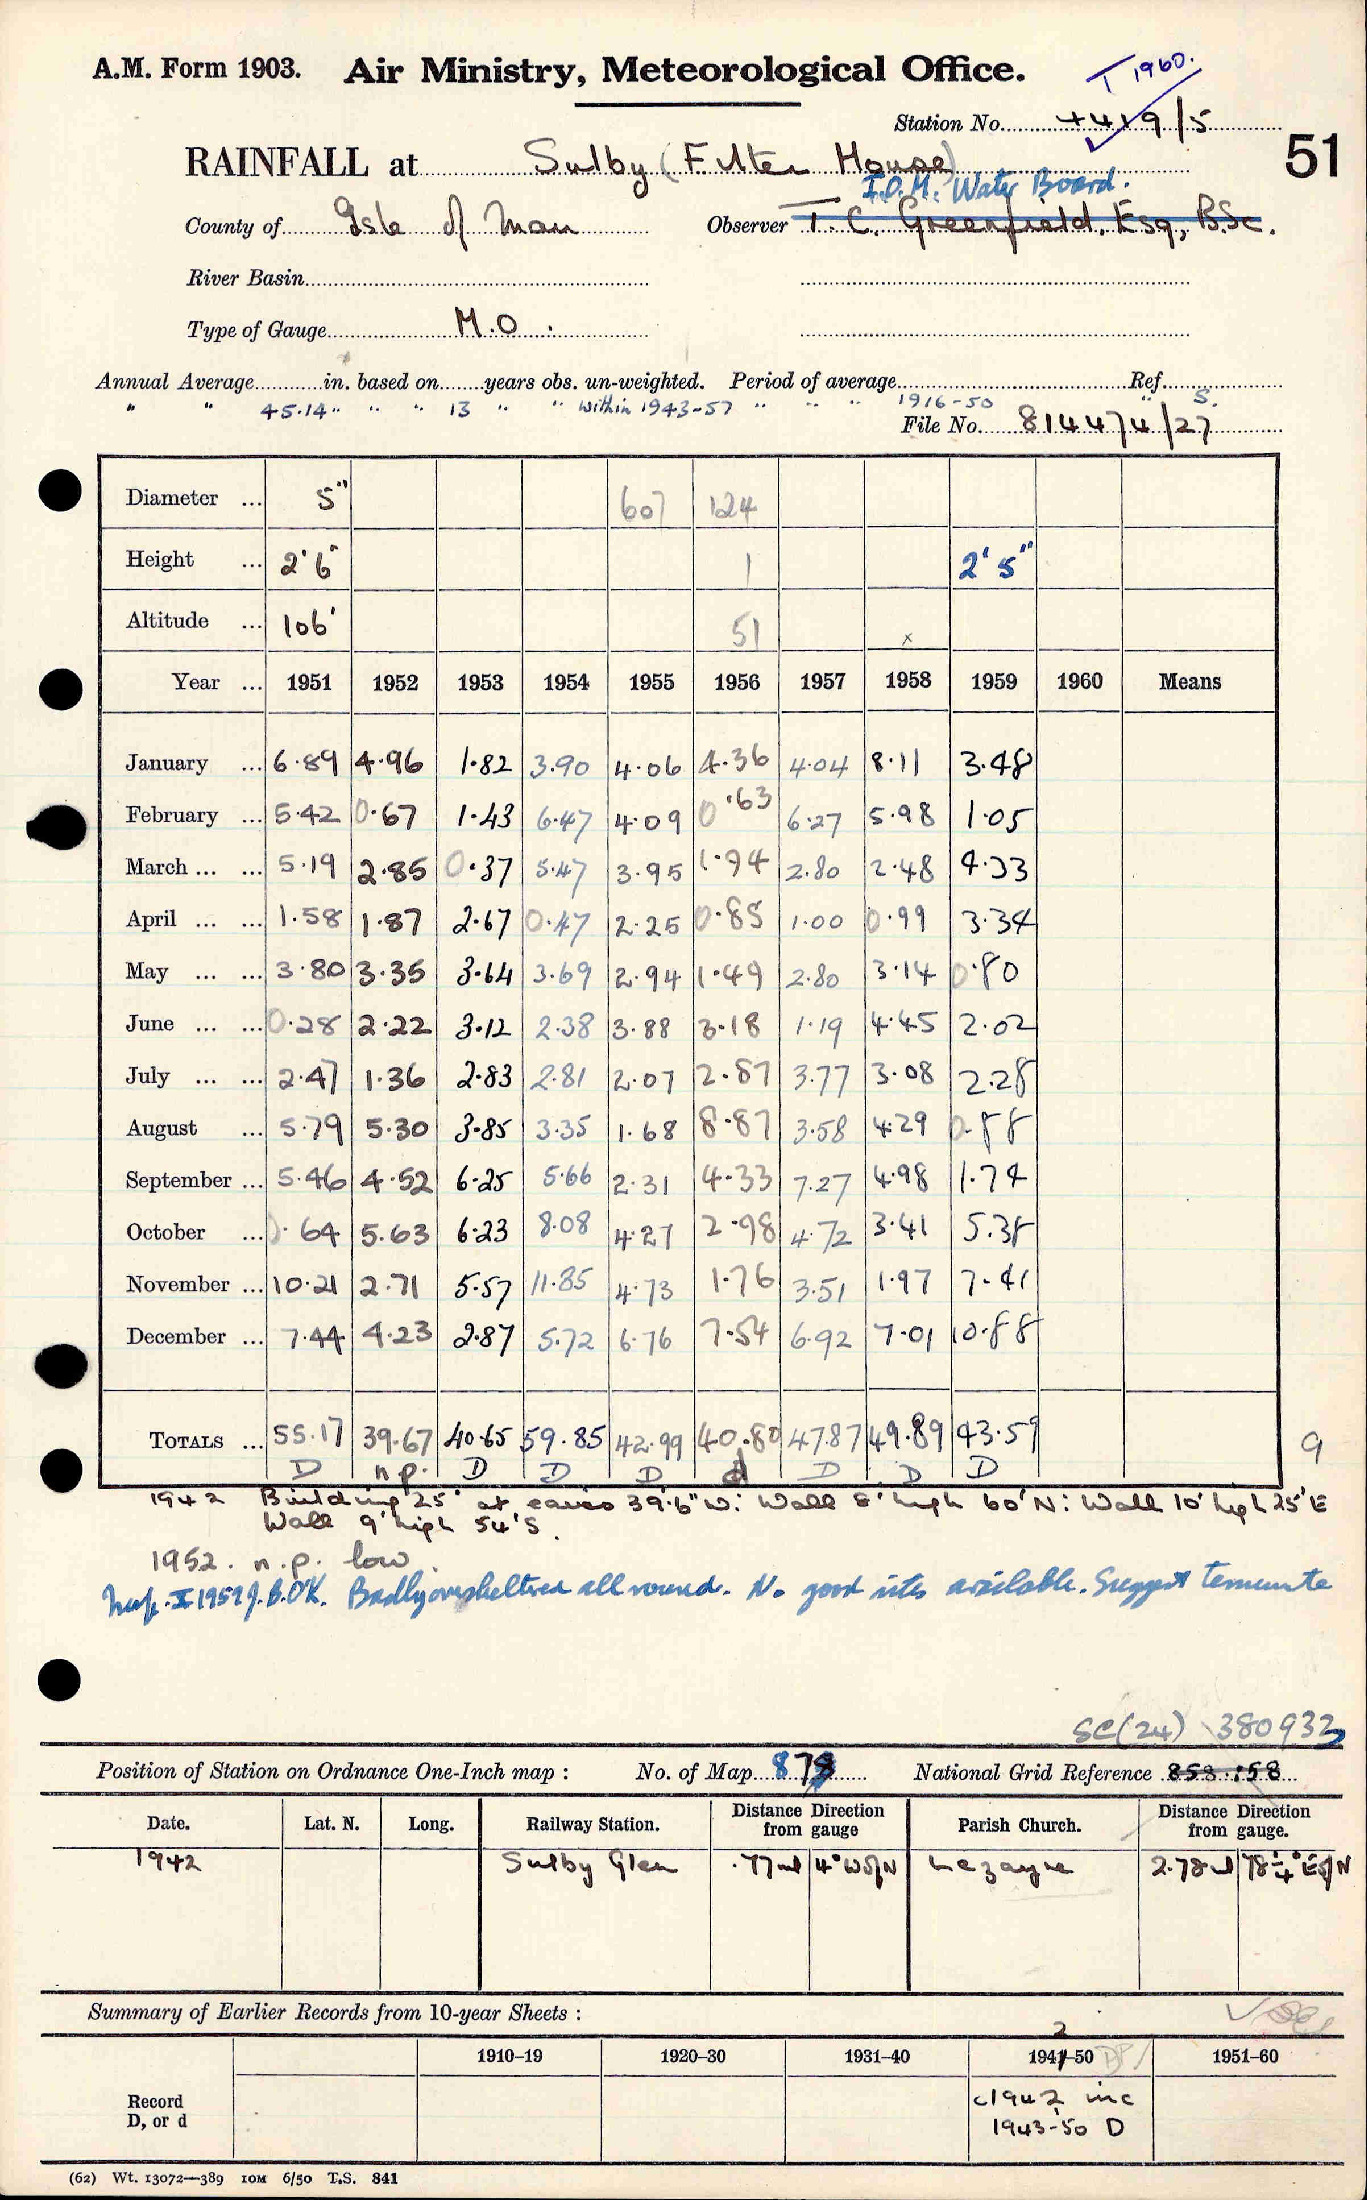 A.M. Form 1903. Air Ministry, Meteorological Office.
T 1960.
Station No. 4419/5
51
RAINFALL at Sulby (Filter House)
I.O.M. Water Board.
County of Isle of Man Observer T. C. Greenfield, Esq., B.Sc.
River Basin
Type of Gauge M.O.
Annual Average in. based on years obs. un-weighted. Period of average Ref.
" " 45.14 " " " 13 " " within 1943-57 " " " 1916-50 " S.
File No. 814474/27
Diameter ... 5" 607 124
Height ... 2'6" 1 2'5"
Altitude ... 106' 51 x
Year ... 1951 1952 1953 1954 1955 1956 1957 1958 1959 1960 Means
January ... 6.89 4.96 1.82 3.90 4.06 4.36 4.04 8.11 3.48
February ... 5.42 0.67 1.43 6.47 4.09 0.63 6.27 5.98 1.05
March ... ... 5.19 2.85 0.37 5.47 3.95 1.94 2.80 2.48 4.33
April ... ... 1.58 1.87 2.67 0.47 2.25 0.85 1.00 0.99 3.34
May ... ... 3.80 3.35 3.64 3.69 2.94 1.49 2.80 3.14 0.80
June ... ... 0.28 2.22 3.12 2.38 3.88 3.18 1.19 4.45 2.02
July ... ... 2.47 1.36 2.83 2.81 2.07 2.87 3.77 3.08 2.28
August ... 5.79 5.30 3.85 3.35 1.68 8.87 3.58 4.29 0.88
September ... 5.46 4.52 6.25 5.66 2.31 4.33 7.27 4.98 1.74
October ... 0.64 5.63 6.23 8.08 4.27 2.98 4.72 3.41 5.38
November ... 10.21 2.71 5.57 11.85 4.73 1.76 3.51 1.97 7.41
December ... 7.44 4.23 2.87 5.72 6.76 7.54 6.92 7.01 10.88
TOTALS ... 55.17 39.67 40.65 59.85 42.99 40.80 47.87 49.89 43.59
9
D n.p. D D D d D D D
1942 Building 25' at eaves 39'6" W: Wall 8' high 60' N: Wall 10' high 25' E
Wall 9' high 54' S.
1952. n.p. low.
Insp. X 1959 J.B.O'K. Badly oversheltered all round. No good sites available. Suggest terminate
SC(24) 380932
Position of Station on Ordnance One-Inch map : No. of Map 87 National Grid Reference 858 : 58
Date. Lat. N. Long. Railway Station. Distance Direction from gauge Parish Church. Distance Direction from gauge.
1942 Sulby Glen .77 ml 4° W of N Lezayre 2.78 ml 78¼° E of N
Summary of Earlier Records from 10-year Sheets :
1910-19 1920-30 1931-40 1942-50 1951-60
Record
D, or d
c1942 inc
1943-50 D
(62) Wt. 13072—389 IOM 6/50 T.S. 841